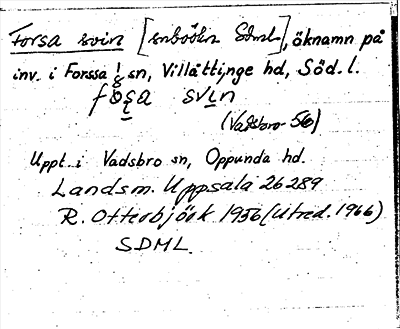 Forsa svin [snböökn Sdml], öknamn på
inv. i Forssa sn, Villåttinge hd, Söd. l.
fosa svin
(Vadsbro 56)
Uppt. i Vadsbro sn, Oppunda hd.
Landsm. Uppsala 26289
R. Otterbjörk 1956 (Utred. 1966)
SDML.